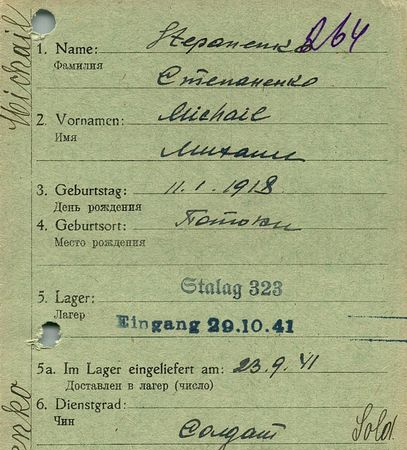 Michail
264
1. Name: Stepanenko
Фамилия
Степаненко
2. Vornamen: Michail
Имя
Михаил
3. Geburtstag: 11.1.1918
День рождения
4. Geburtsort: Потоки
Место рождения
5. Lager: Stalag 323
Лагер
Eingang 29.10.41
5a. Im Lager eingeliefert am: 23.9.41
Доставлен в лагер (число)
6. Dienstgrad:
Чин
Солдат Sold.
enko